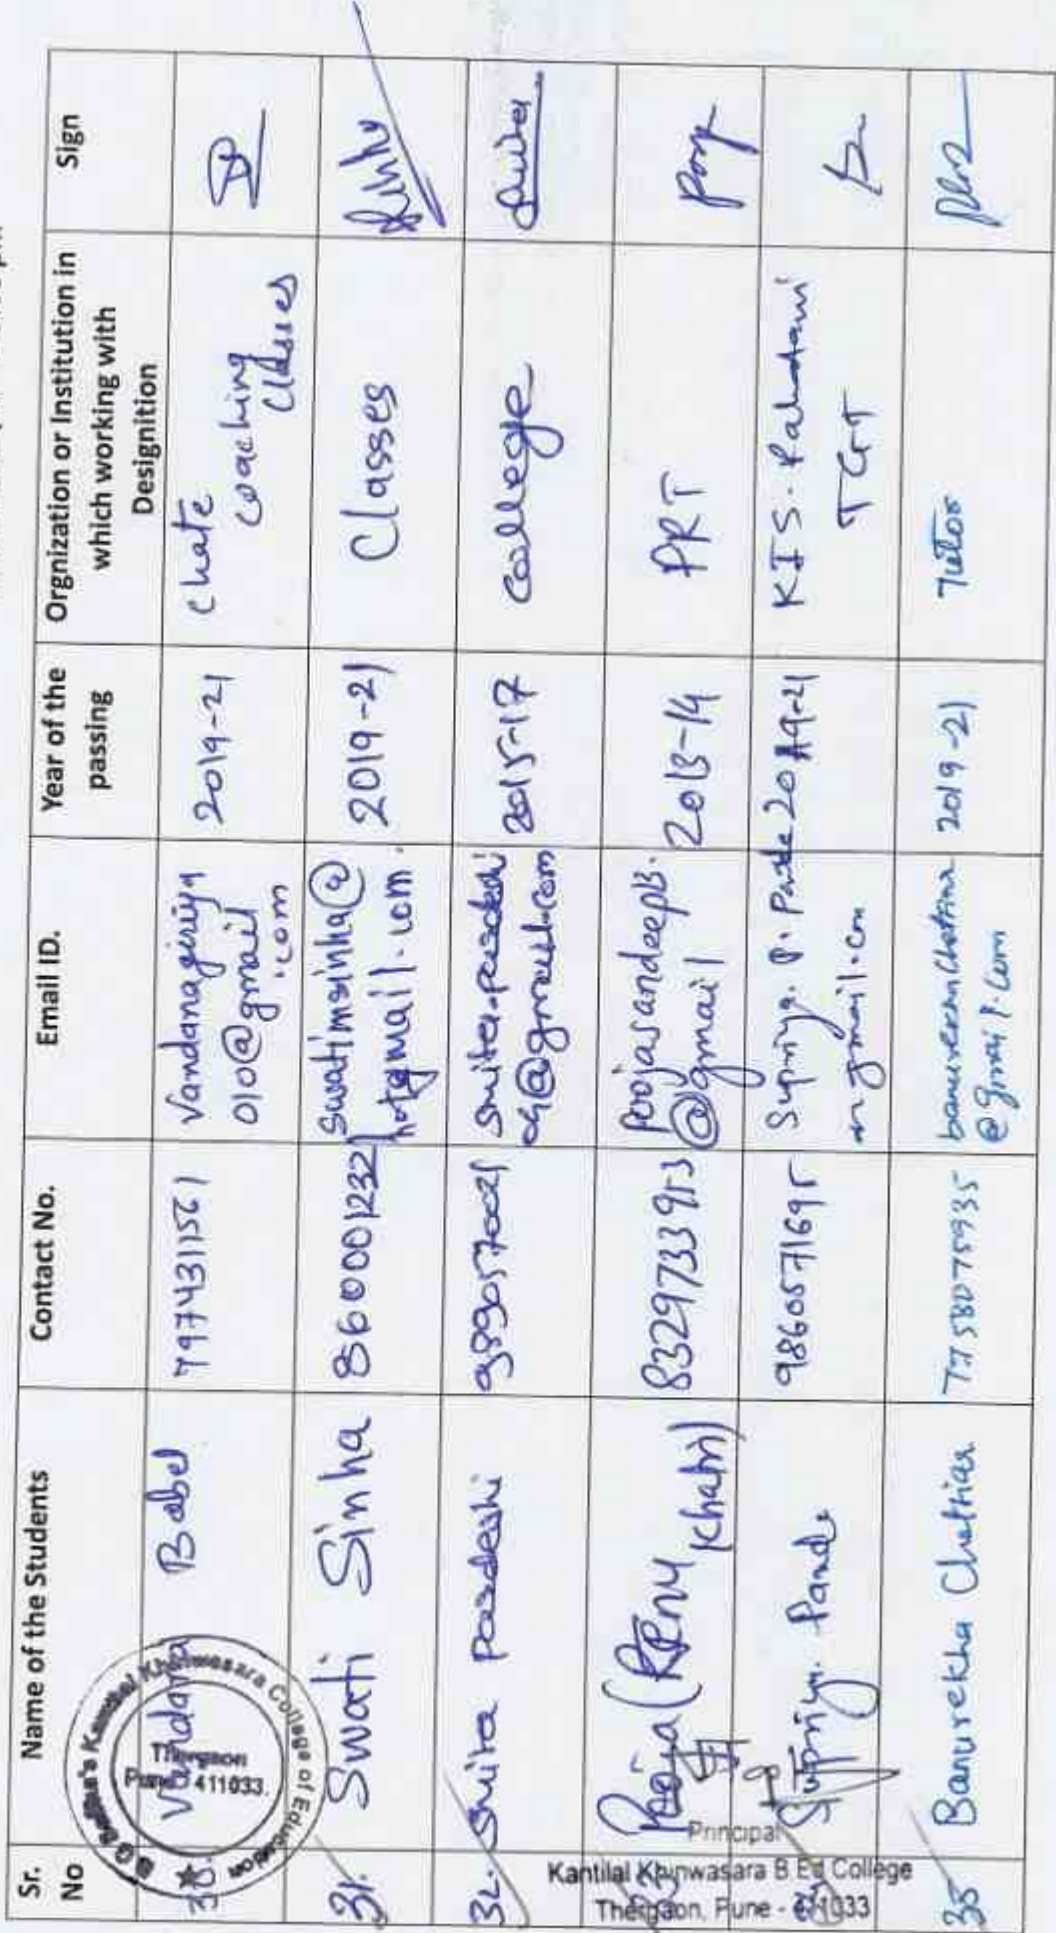 Sr. No
Name of the Students
Contact No.
Email ID.
Year of the passing
Orgnization or Institution in which working with Designition
Sign
30.
Vandana Babel
7974311561
Vandanagiriya
010@gmail
.com
2019-21
Chate
coaching
classes
31.
Swati Sinha
8600001232
Swatimsinha@
hotmail.com.
2019-21
Classes
32.
Smita Pardeshi
9890570021
@gmail.com
2015-17
College
Pooja
Khatri)
8329733953
poojasandeep13.
@gmail
2013-14
PRT
Supriya. Pande
9860571695
Supriya. P. Pande
gmail.com
2019-21
KIS.
TGT
35
Banurekha Chettiar
7758075935
@gmail.com
2019-21
Tutor
Kantilal Khinwasara College of Education
Thergaon
Pune - 411033.
Principal
Kantilal Khinwasara B Ed College
Thergaon, Pune - 411033